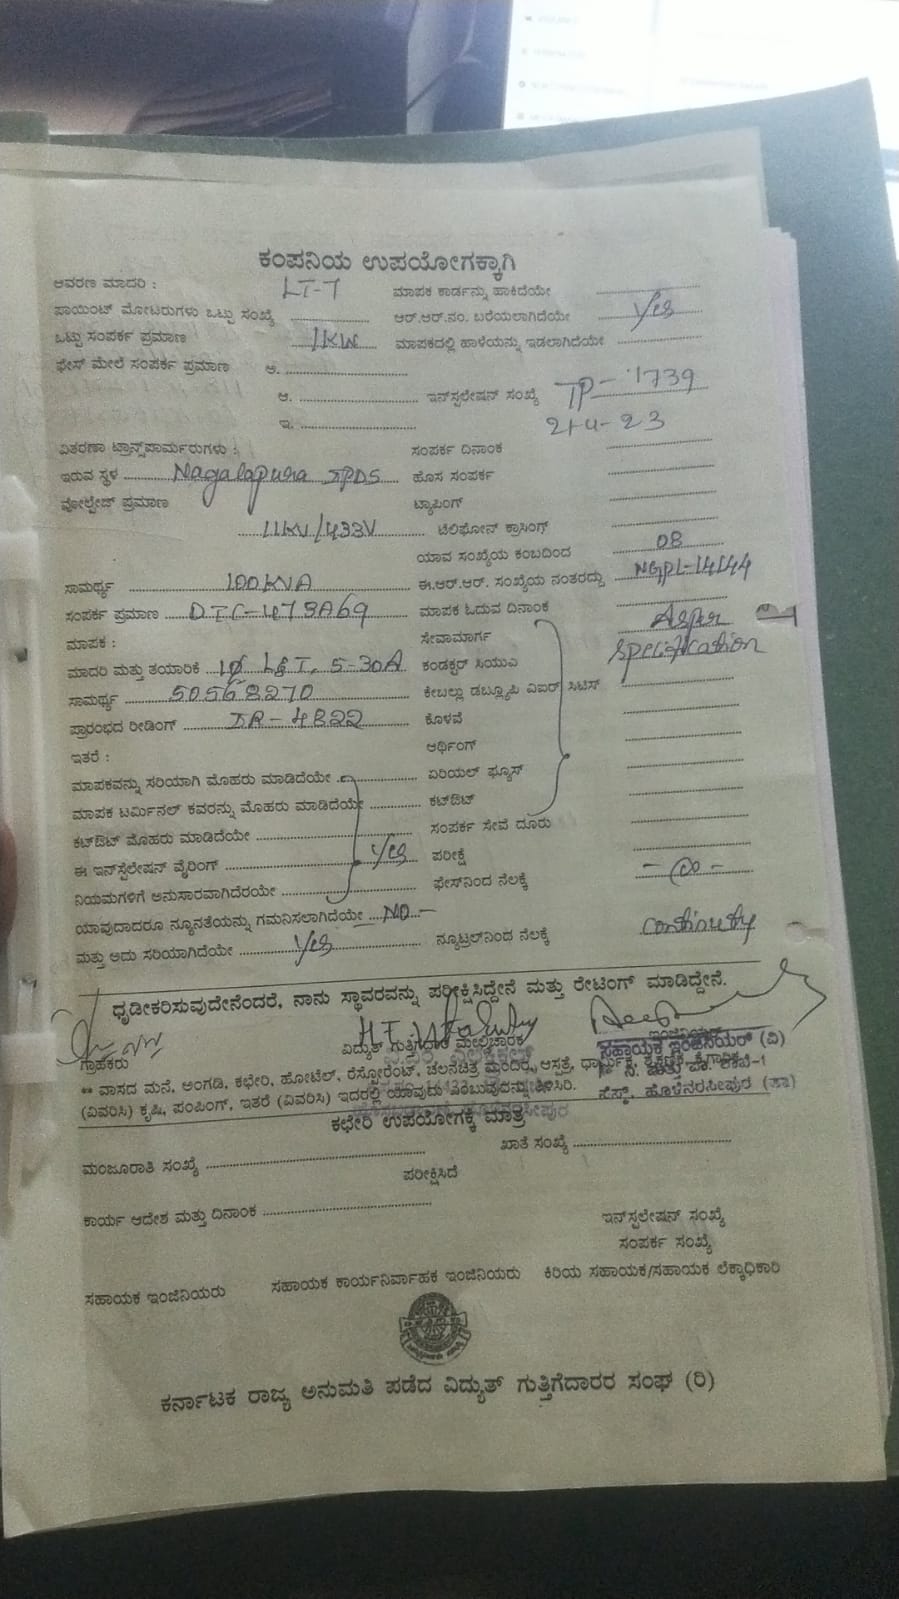 ಕಂಪನಿಯ ಉಪಯೋಗಕ್ಕಾಗಿ
ಆವರಣ ಮಾದರಿ : LT-7 ಮಾಪಕ ಕಾರ್ಡನ್ನು ಹಾಕಿದೆಯೇ
ಪಾಯಿಂಟ್ ಮೋಟರುಗಳು ಒಟ್ಟು ಸಂಖ್ಯೆ ಆರ್.ಆರ್.ನಂ. ಬರೆಯಲಾಗಿದೆಯೇ Yes
ಒಟ್ಟು ಸಂಪರ್ಕ ಪ್ರಮಾಣ 1KW ಮಾಪಕದಲ್ಲಿ ಹಾಳೆಯನ್ನು ಇಡಲಾಗಿದೆಯೇ
ಫೇಸ್ ಮೇಲೆ ಸಂಪರ್ಕ ಪ್ರಮಾಣ ಅ.
ಆ. ಇನ್‌ಸ್ಟಲೇಷನ್ ಸಂಖ್ಯೆ TP-1739
ಇ. 21-4-23
ವಿತರಣಾ ಟ್ರಾನ್ಸ್‌ಫಾರ್ಮರುಗಳು : ಸಂಪರ್ಕ ದಿನಾಂಕ
ಇರುವ ಸ್ಥಳ Nagalapura ಹೊಸ ಸಂಪರ್ಕ
ವೋಲ್ಟೇಜ್ ಪ್ರಮಾಣ ಟ್ಯಾಪಿಂಗ್
11KV/433V ಟೆಲಿಫೋನ್ ಕ್ರಾಸಿಂಗ್
ಯಾವ ಸಂಖ್ಯೆಯ ಕಂಬದಿಂದ 08
ಸಾಮರ್ಥ್ಯ 100KVA ಈ.ಆರ್.ಆರ್. ಸಂಖ್ಯೆಯ ನಂತರದ್ದು NGPL-14144
ಸಂಪರ್ಕ ಪ್ರಮಾಣ ಮಾಪಕ ಓದುವ ದಿನಾಂಕ
ಮಾಪಕ : ಸೇವಾಮಾರ್ಗ As per
ಮಾದರಿ ಮತ್ತು ತಯಾರಿಕೆ 1φ L&T, 5-30A ಕಂಡಕ್ಟರ್ ಸಿಯುವಿ specification
ಸಾಮರ್ಥ್ಯ 50568270 ಕೇಬಲ್ಲು ಡಬ್ಲ್ಯೂಪಿ ವಿಐಆರ್ ಸಿಟಿಸ್
ಪ್ರಾರಂಭದ ರೀಡಿಂಗ್ IR-4822 ಕೊಳವೆ
ಇತರೆ : ಆರ್ಥಿಂಗ್
ಮಾಪಕವನ್ನು ಸರಿಯಾಗಿ ಮೊಹರು ಮಾಡಿದೆಯೇ ಏರಿಯಲ್ ಫ್ಯೂಸ್
ಮಾಪಕ ಟರ್ಮಿನಲ್ ಕವರನ್ನು ಮೊಹರು ಮಾಡಿದೆಯೇ ಕಟ್‌ಔಟ್
ಕಟ್‌ಔಟ್ ಮೊಹರು ಮಾಡಿದೆಯೇ ಸಂಪರ್ಕ ಸೇವೆ ದೂರು
ಈ ಇನ್‌ಸ್ಟೆಲೇಷನ್ ವೈರಿಂಗ್ Yes ಪರೀಕ್ಷೆ
ನಿಯಮಗಳಿಗೆ ಅನುಸಾರವಾಗಿದೆರಯೇ ಫೇಸ್‌ನಿಂದ ನೆಲಕ್ಕೆ
ಯಾವುದಾದರೂ ನ್ಯೂನತೆಯನ್ನು ಗಮನಿಸಲಾಗಿದೆಯೇ NO
ಮತ್ತು ಅದು ಸರಿಯಾಗಿದೆಯೇ Yes ನ್ಯೂಟ್ರಲ್‌ನಿಂದ ನೆಲಕ್ಕೆ continuty
ಧೃಡೀಕರಿಸುವುದೇನೆಂದರೆ, ನಾನು ಸ್ಥಾವರವನ್ನು ಪರೀಕ್ಷಿಸಿದ್ದೇನೆ ಮತ್ತು ರೇಟಿಂಗ್ ಮಾಡಿದ್ದೇನೆ.
ಗ್ರಾಹಕರು ವಿದ್ಯುತ್ ಗುತ್ತಿಗೆದಾರ ಮೇಲ್ವಿಚಾರಕ ಸಹಾಯಕ ಇಂಜಿನಿಯರ್ (ವಿ)
** ವಾಸದ ಮನೆ, ಅಂಗಡಿ, ಕಛೇರಿ, ಹೋಟೆಲ್, ರೆಸ್ಟೋರೆಂಟ್, ಚಲನಚಿತ್ರ ಮಂದಿರ, ಆಸ್ಪತ್ರೆ,
(ವಿವರಿಸಿ) ಕೃಷಿ, ಪಂಪಿಂಗ್, ಇತರೆ (ವಿವರಿಸಿ) ಇದರಲ್ಲಿ ಯಾವುದು ಎಂಬುವುದನ್ನು ತಿಳಿಸಿರಿ. ಹೊಳೆನರಸೀಪುರ (ತಾ)
ಕಛೇರಿ ಉಪಯೋಗಕ್ಕೆ ಮಾತ್ರ
ಮಂಜೂರಾತಿ ಸಂಖ್ಯೆ ಖಾತೆ ಸಂಖ್ಯೆ
ಪರೀಕ್ಷಿಸಿದೆ
ಕಾರ್ಯ ಆದೇಶ ಮತ್ತು ದಿನಾಂಕ
ಇನ್‌ಸ್ಟಲೇಷನ್ ಸಂಖ್ಯೆ
ಸಂಪರ್ಕ ಸಂಖ್ಯೆ
ಸಹಾಯಕ ಇಂಜಿನಿಯರು ಸಹಾಯಕ ಕಾರ್ಯನಿರ್ವಾಹಕ ಇಂಜಿನಿಯರು ಕಿರಿಯ ಸಹಾಯಕ/ಸಹಾಯಕ ಲೆಕ್ಕಾಧಿಕಾರಿ
ಕರ್ನಾಟಕ ರಾಜ್ಯ ಅನುಮತಿ ಪಡೆದ ವಿದ್ಯುತ್ ಗುತ್ತಿಗೆದಾರರ ಸಂಘ (ರಿ)